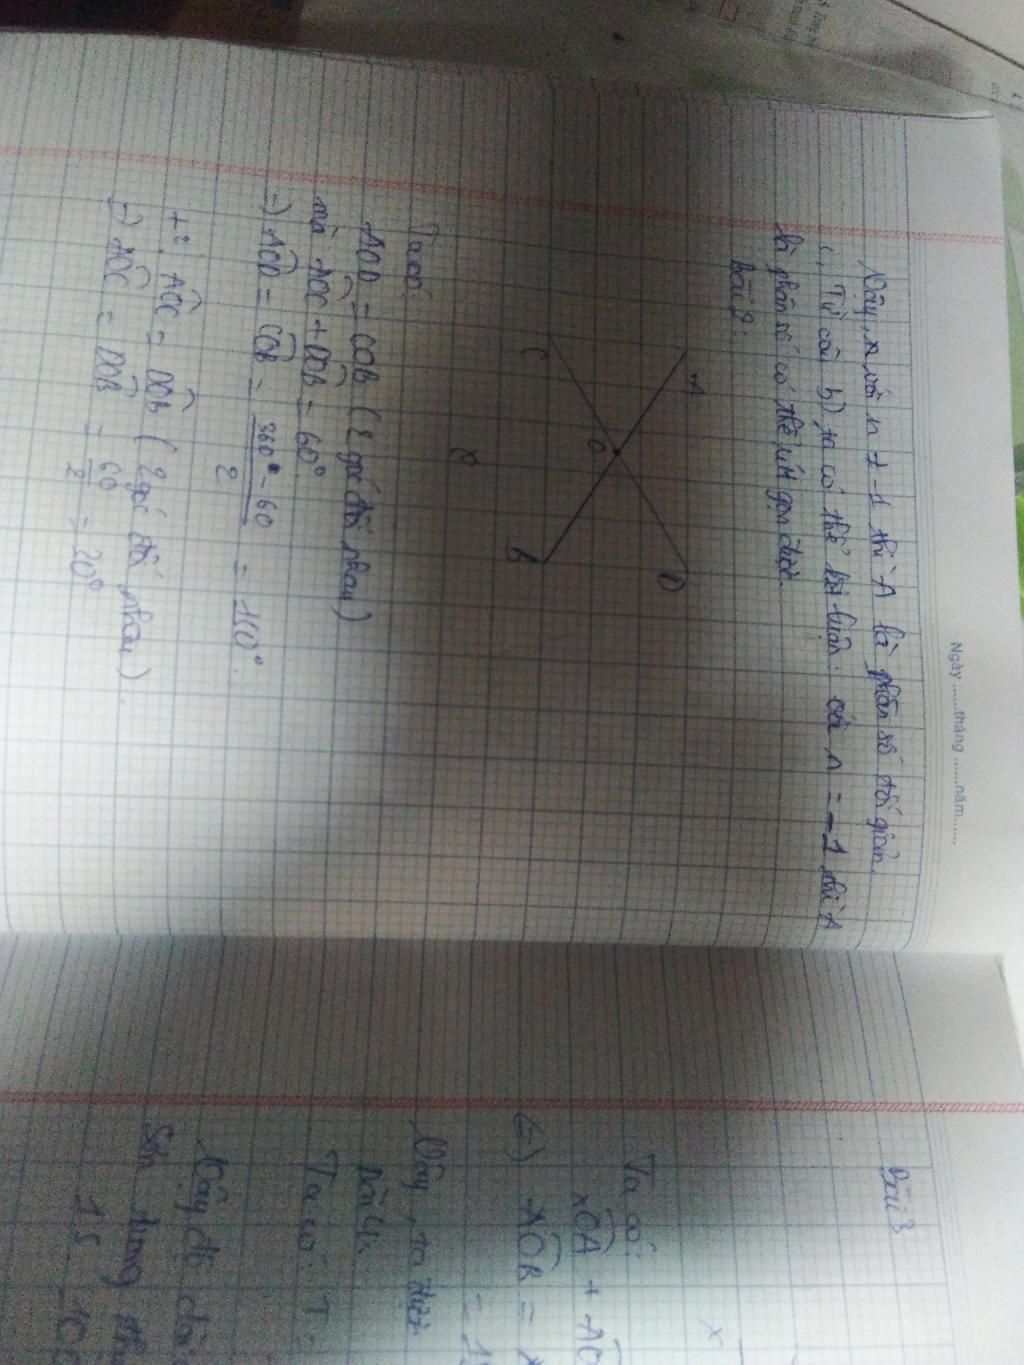 Ngày ......tháng ......năm.......
Vậy, với n ≠ -1 thì A là phân số tối giản.
c, Từ câu b) ta có thể kết luận: với n = -1 thì A
là phân số có thể rút gọn được.
Bài 2:
A
D
O
C
B
Ta có:
AOD = COB (2 góc đối nhau)
mà AOC + DOB = 60°
=) AOD = COB = 360° - 60 / 2 = 150°.
AOC = DOB (2 góc đối nhau)
=) AOC = DOB = 60 / 2 = 30°
Bài 3
x
Ta có:
xOA + AO
(=) AOB =
Vậy, ta được
Bài 4.
Ta có: T =
Vậy độ dài
15 10